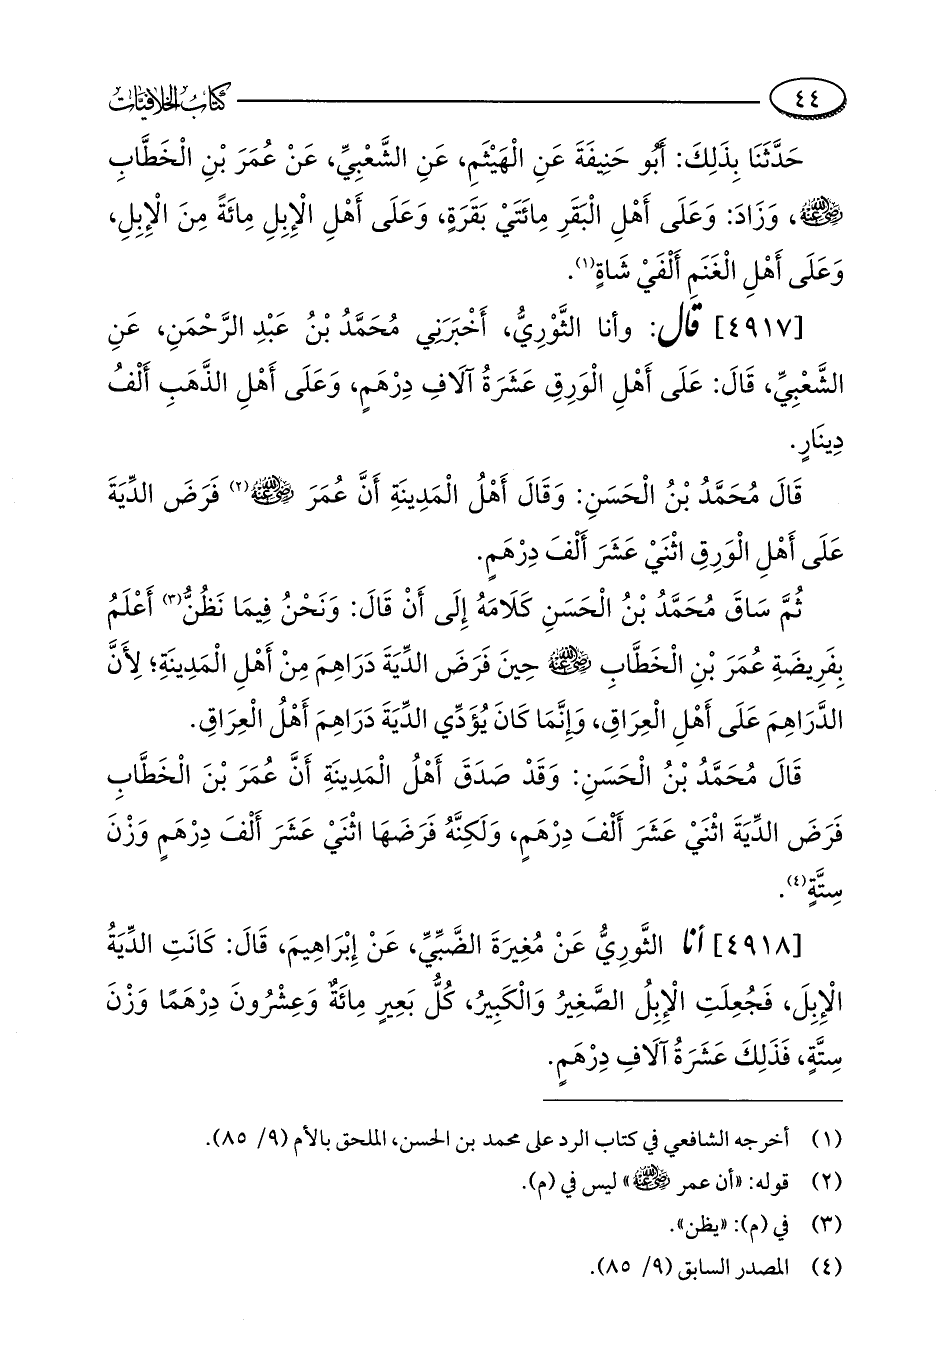 ٤٤ كتاب الخلافيات
حَدَّثَنَا بِذَلِكَ: أَبُو حَنِيفَةَ عَنِ الْهَيْثَمِ، عَنِ الشَّعْبِيِّ، عَنْ عُمَرَ بْنِ الْخَطَّابِ
رضي الله عنه، وَزَادَ: وَعَلَى أَهْلِ الْبَقَرِ مِائَتَيْ بَقَرَةٍ، وَعَلَى أَهْلِ الْإِبِلِ مِائَةً مِنَ الْإِبِلِ،
وَعَلَى أَهْلِ الْغَنَمِ أَلْفَيْ شَاةٍ(١).
[٤٩١٧] قال: وأنا الثَّوْرِيُّ، أَخْبَرَنِي مُحَمَّدُ بْنُ عَبْدِ الرَّحْمَنِ، عَنِ
الشَّعْبِيِّ، قَالَ: عَلَى أَهْلِ الْوَرِقِ عَشَرَةُ آلَافِ دِرْهَمٍ، وَعَلَى أَهْلِ الذَّهَبِ أَلْفُ
دِينَارٍ.
قَالَ مُحَمَّدُ بْنُ الْحَسَنِ: وَقَالَ أَهْلُ الْمَدِينَةِ أَنَّ عُمَرَ رضي الله عنه(٢) فَرَضَ الدِّيَةَ
عَلَى أَهْلِ الْوَرِقِ اثْنَيْ عَشَرَ أَلْفَ دِرْهَمٍ.
ثُمَّ سَاقَ مُحَمَّدُ بْنُ الْحَسَنِ كَلَامَهُ إِلَى أَنْ قَالَ: وَنَحْنُ فِيمَا نَظُنُّ(٣) أَعْلَمُ
بِفَرِيضَةِ عُمَرَ بْنِ الْخَطَّابِ رضي الله عنه حِينَ فَرَضَ الدِّيَةَ دَرَاهِمَ مِنْ أَهْلِ الْمَدِينَةِ؛ لِأَنَّ
الدَّرَاهِمَ عَلَى أَهْلِ الْعِرَاقِ، وَإِنَّمَا كَانَ يُؤَدِّي الدِّيَةَ دَرَاهِمَ أَهْلُ الْعِرَاقِ.
قَالَ مُحَمَّدُ بْنُ الْحَسَنِ: وَقَدْ صَدَقَ أَهْلُ الْمَدِينَةِ أَنَّ عُمَرَ بْنَ الْخَطَّابِ
فَرَضَ الدِّيَةَ اثْنَيْ عَشَرَ أَلْفَ دِرْهَمٍ، وَلَكِنَّهُ فَرَضَهَا اثْنَيْ عَشَرَ أَلْفَ دِرْهَمٍ وَزْنَ
سِتَّةٍ(٤).
[٤٩١٨] أنا الثَّوْرِيُّ عَنْ مُغِيرَةَ الضَّبِّيِّ، عَنْ إِبْرَاهِيمَ، قَالَ: كَانَتِ الدِّيَةُ
الْإِبِلَ، فَجُعِلَتِ الْإِبِلُ الصَّغِيرُ وَالْكَبِيرُ، كُلُّ بَعِيرٍ مِائَةٌ وَعِشْرُونَ دِرْهَمًا وَزْنَ
سِتَّةٍ، فَذَلِكَ عَشَرَةُ آلَافِ دِرْهَمٍ.
(١) أخرجه الشافعي في كتاب الرد على محمد بن الحسن، الملحق بالأم (٩/ ٨٥).
(٢) قوله: «أن عمر رضي الله عنه» ليس في (م).
(٣) في (م): «يظن».
(٤) المصدر السابق (٩/ ٨٥).